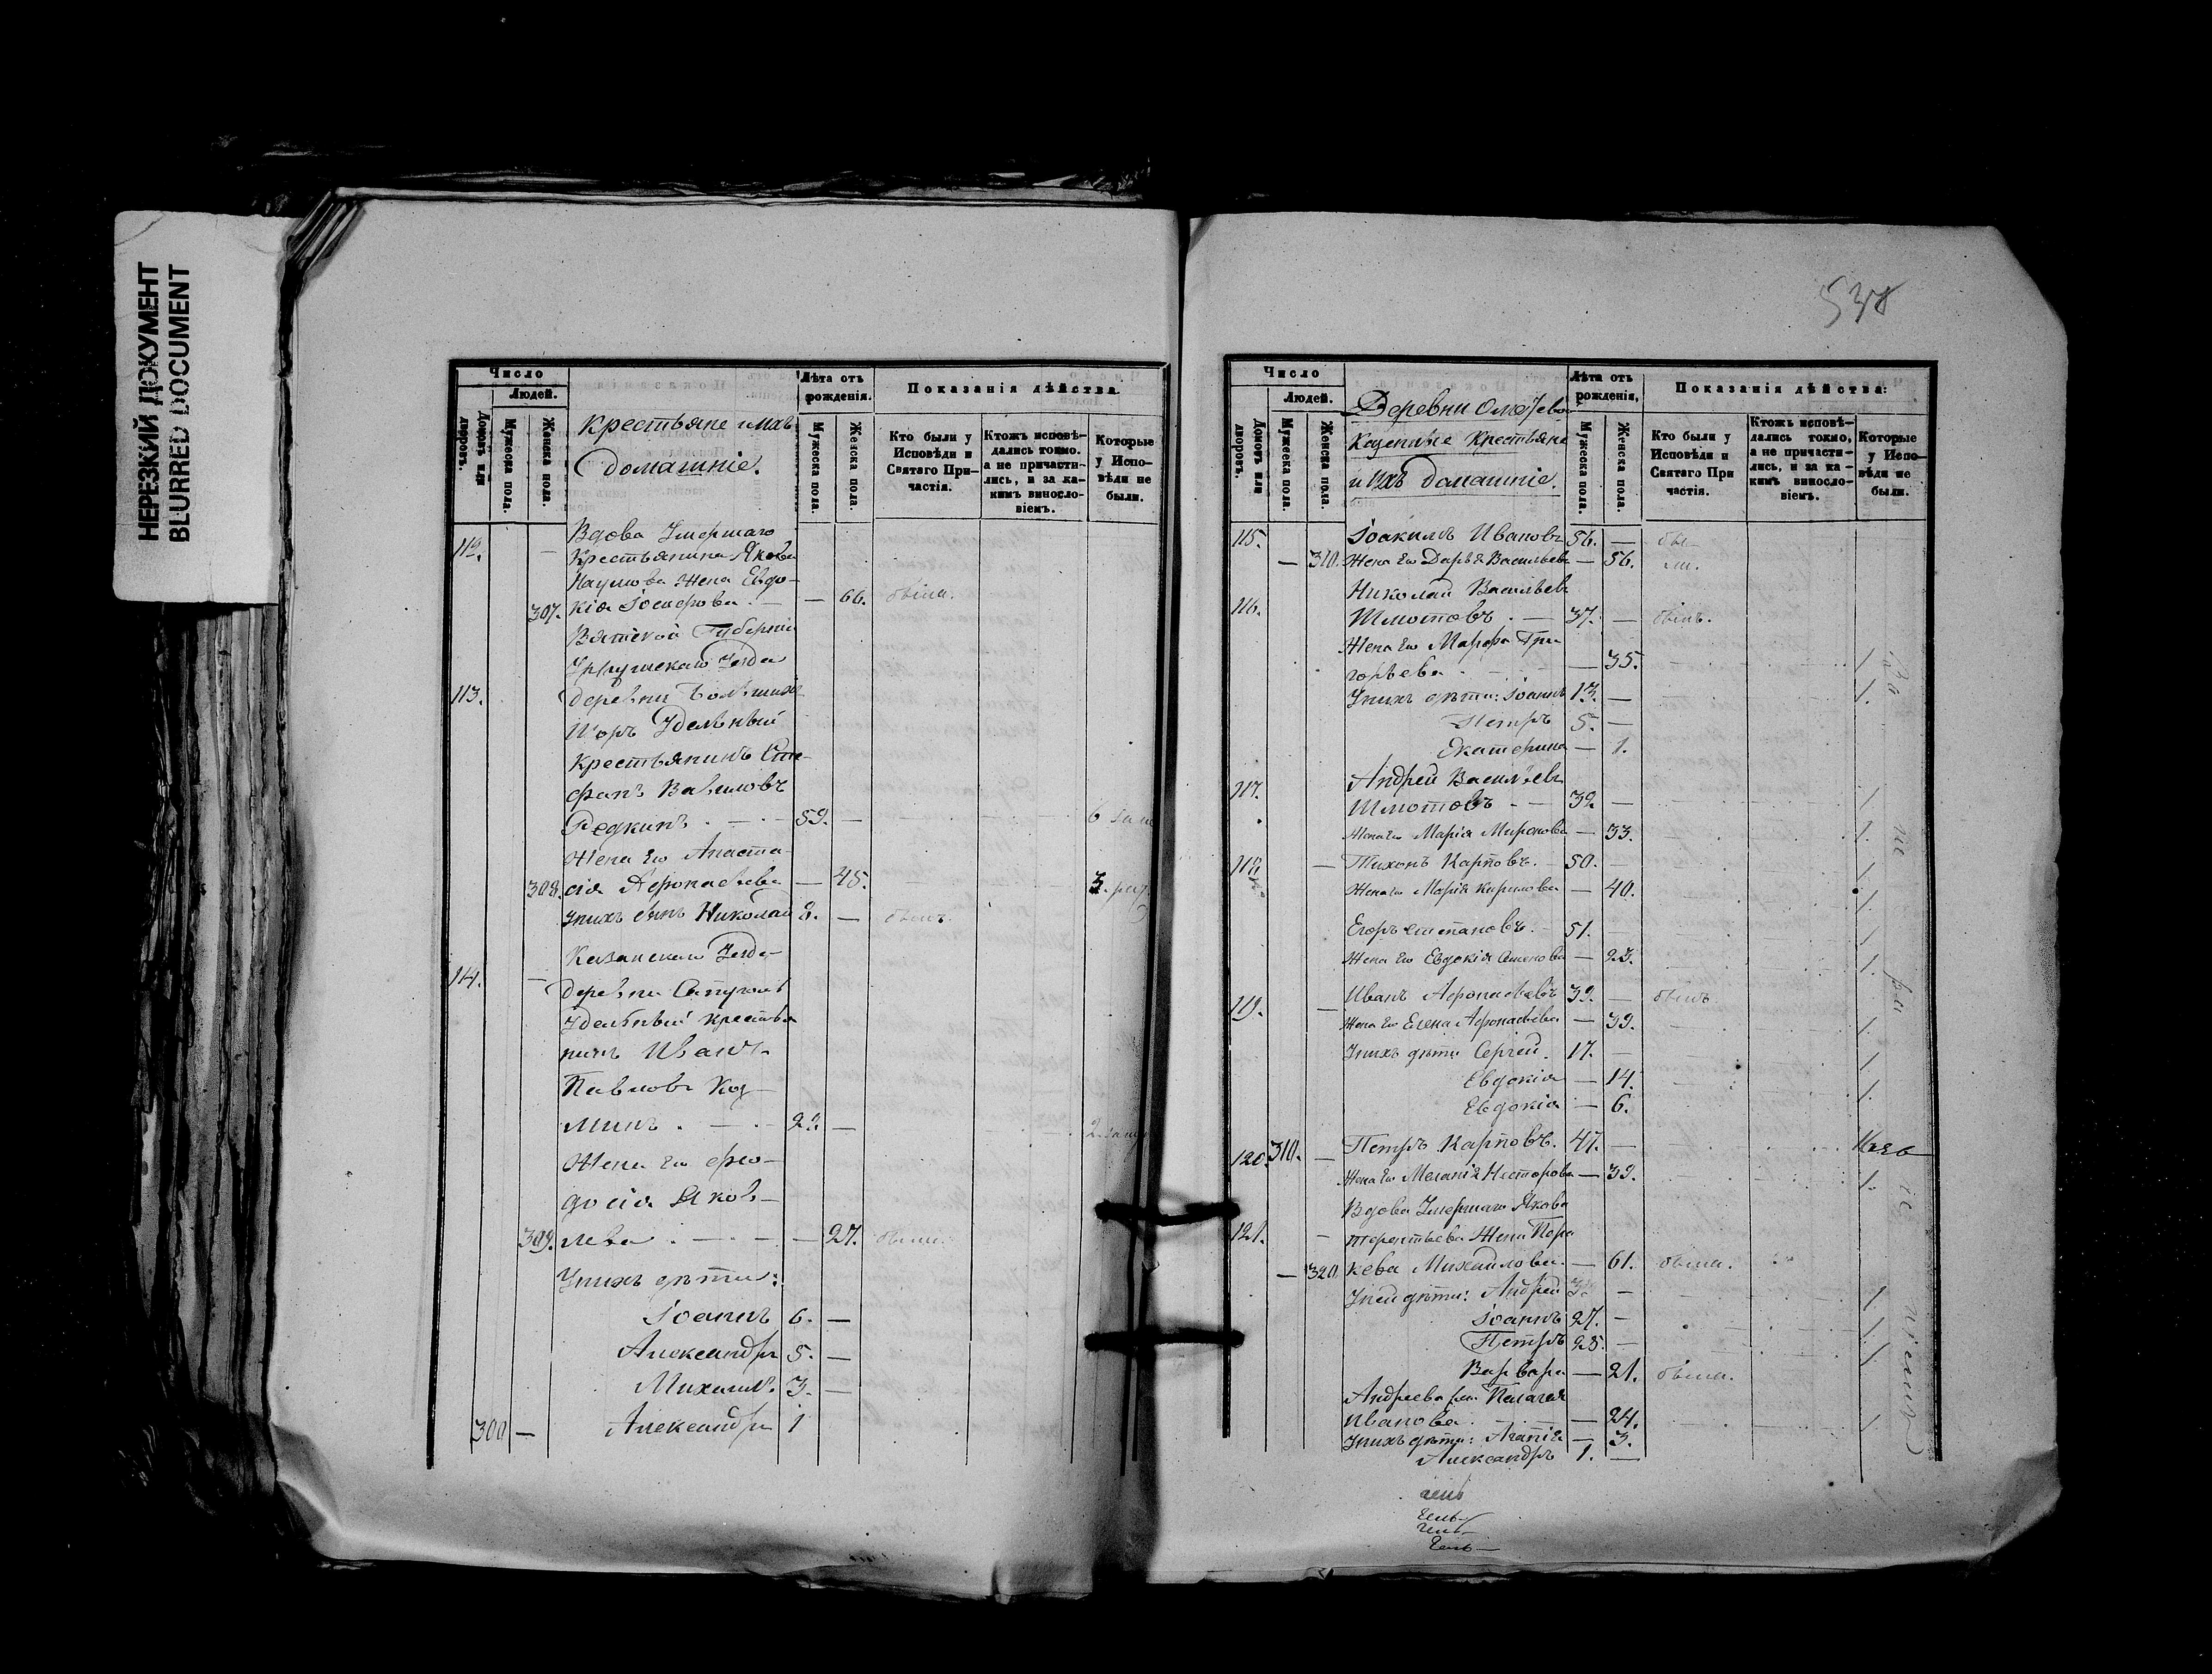 НЕРЕЗКИЙ ДОКУМЕНТ
BLURRED DOCUMENT
Число
Людей.
Домовъ или дворовъ.
Мужеска пола.
Женска пола.
Крестьяне и ихъ
домашніе.
Лѣта отъ рожденія.
Мужеска пола.
Женска пола.
Показанія дѣйства
Кто были у Исповѣди и Святаго При-частія.
Ктожъ исповѣ-дались токмо. а не причасти-лись, и за ка-кимъ виносло-віемъ.
Которые у Испо-вѣди не были.
Вдова Умершаго
112. — Крестьянина Якова
Наумова Жена Евдо-
307. кія Іосифова. — — 66. была.
Вятской Губерніи
Уржумскаго Уезда
113. деревни Большихъ
Шоръ Удельный
Крестьянинъ Сте-
фанъ Вавиловъ
Редкинъ . — . — 59. —
Жена его Анаста-
308. сія Афонасьева — 45.
Унихъ сынъ Николай 8. — былъ.
Казанскаго Уезда
114. — деревни
Удельный крестья
нинъ Иванъ
Павловъ Коз-
минъ . — . — 29. —
Жена его Фео-
досія Яков-
309. лева . — . — — 27. была.
Унихъ дѣти:
Іоаннъ 6. —
Александръ 5. —
Михаилъ 3. —
300 — Александръ 1
538
Число
Людей.
Домовъ или дворовъ.
Мужеска пола.
Женска пола.
Деревни
Казенные Крестьяне
и Ихъ домашніе.
Лѣта отъ рожденія,
Мужеска пола.
Женска пола.
Показанія дѣйства:
Кто были у Исповѣди и Святаго При частія.
Ктожъ исповѣ-дались токмо, а не причасти-лись, и за ка-кимъ виносло-віемъ.
Которые у Испо-вѣди не были.
115. Іоакимъ Ивановъ 56. — бы-
— 310. Жена Его Дарья Васильева — 56. ли.
Николай Васильевъ
116. Шмотовъ . — 37. — былъ.
Жена Его Марфа Гри
горьева — 35. 1.
Унихъ дѣти: Іоаннъ 13. — 1.
Петръ 5. —
Екатерина — 1.
117. Андрей Васильевъ
Шмотовъ — 39. — 1.
Жена его Марія Миронова — 33. 1.
118. — Тихонъ Карповъ. 50. — 1.
Жена его Марія Кирилова — 40. 1.
Егоръ Степановъ. 51. 1
Жена Его Евдокія Семенова — 1.
119. — Иванъ Афонасьевъ 39. — былъ
Жена Его Елена Афонасьева — 39. 1.
Унихъ дѣти Сергей. 17. — 1.
Евдокія — 14. 1.
Евдокія — 6.
120. 310. — Петръ Карповъ. 47. —
Жена Его Меланія Нестерова — 39. 1.
Вдова Умершаго Якова
121. — Терентьева Жена Пара
— 320 кева Михайлова. — 61. была.
Уней дѣти: Андрей — 1
Іоаннъ 27. — 1
Петръ — 1
Варвара — 21. была.
Андреева Пелагея
Иванова. — 24. 1
Унихъ дѣти: Агапія — 3.
Александръ 1. —